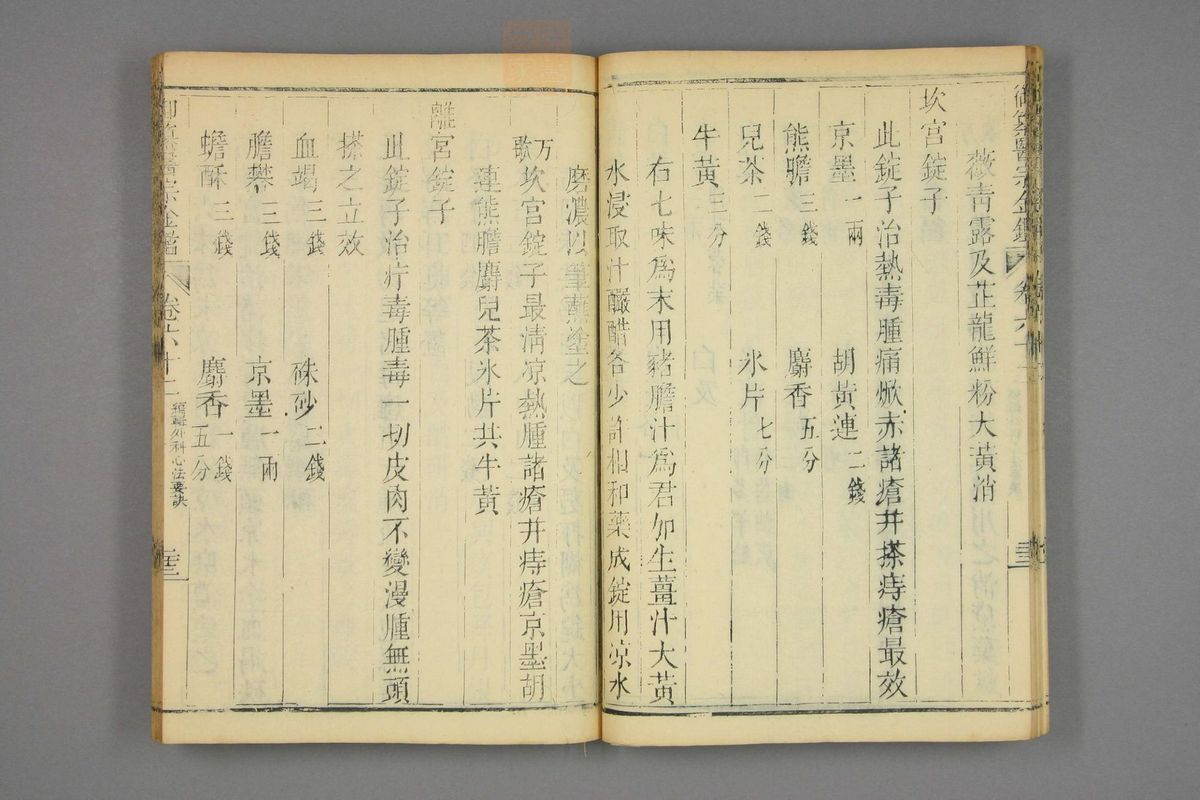 薇靑露及芷龍鮮粉大黃消
坎宮錠子
此錠子治熱毒腫痛焮赤諸瘡并搽痔瘡最效
京墨一兩　胡黃連二錢
熊膽三錢　麝香五分
兒茶二錢　氷片七分
牛黃三分
右七味爲末用豬膽汁爲君加生薑汁大黃
水浸取汁釅醋各少許相和藥成錠用凉水
磨濃以筆蘸塗之
方歌　坎宮錠子最清凉熱腫諸瘡并痔瘡京墨胡
連熊膽麝兒茶氷片共牛黃
離宮錠子
此錠子治疔毒腫毒一切皮肉不變漫腫無頭
搽之立效
血竭三錢　硃砂二錢
膽礬三錢　京墨一兩
蟾酥三錢　麝香一錢五分
卷六十二　編輯外科心法要訣